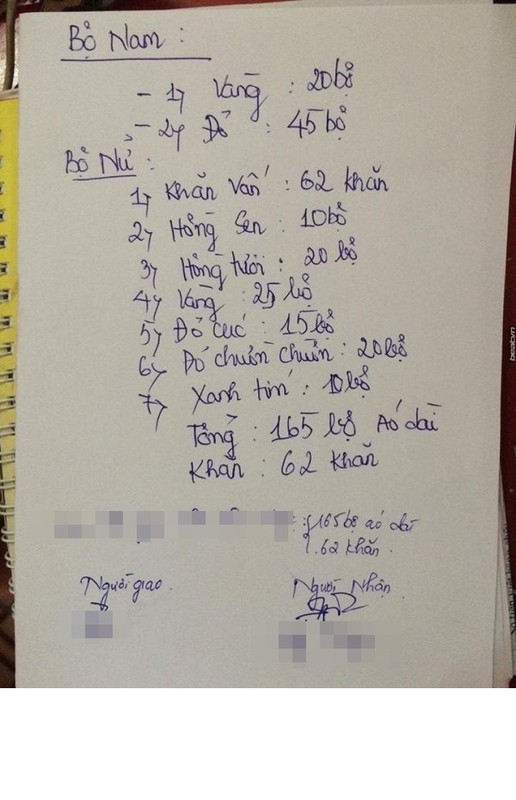 Bộ Nam :
- 1) Vàng : 20 bộ
- 2) Đỏ : 45 bộ
Bộ Nữ :
1) Khăn Vấn : 62 khăn
2) Hồng Sen : 10 bộ
3) Hồng tươi : 20 bộ
4) Vàng : 25 bộ
5) Đỏ cúc : 15 bộ
6) Đỏ chuồn chuồn : 20 bộ
7) Xanh tím : 10 bộ
Tổng : 165 bộ Áo dài
Khăn : 62 khăn
: 165 bộ áo dài
. 62 khăn .
Người giao . Người Nhận
beat.vn